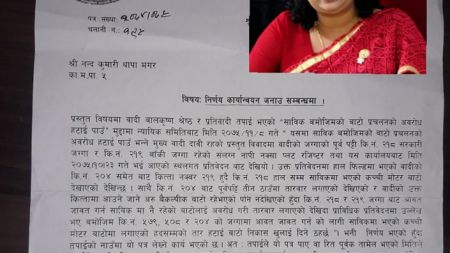 पत्र संख्या
चलानी नं.
श्री नन्द कुमारी थापा मगर
का म.पा. ५
विषय: निर्णय कार्यान्वयन जनाउ सम्बन्धमा ।
प्रस्तुत विषयमा वादी बालकृष्ण श्रेष्ठ र प्रतिवादी तपाईं भएको "साविक बमोजिमको बाटो प्रचलनको अवरोध
हटाई पाउँ" मुद्दामा न्यायिक समितिबाट मिति २०७५/११/८ गते " यसमा साविक बमोजिमको बाटो प्रचलनको
अवरोध हटाई पाउँ भन्ने मुख्य वादी दावी रहेको प्रस्तुत विवादमा वादीको जग्गाको पूर्व कि.नं. २१८ सरकारी
जग्गा र कि.नं. २१९ वाकी जग्गा रहेको संलग्न नापी नक्सा प्लट रजिष्टर तथा यस कार्यालयबाट मिति
२०७५/१०/२३ गते भई आएको स्थलगत प्रतिवेदन बाट देखिन्छ । उक्त प्रतिवेदनमा हाल फिल्डमा भएको वादीको
कि.नं. २०४ समेत बाट कित्ता नम्बर २१९ हुदै कि.नं. २१८ हाल सम्म साविकमा भएको कच्ची मोटर बाटो
देखाएको देखिन्छ । साथै कि.नं. २०४ बाट पूर्वपट्टि तीन ठाउँमा तारबार लगाएको देखिएको र वादीको उक्त
कित्तामा आउने जाने अरु बैकल्पीक बाटो रहेभएको पनि नदेखिएको हुँदा कि.नं. २१८ र २१९ जग्गा बाट आगत
जावत गर्न साविक मै नै रहेको बाटोलाई अवरोध गरी तारबार लगाएको देखिदा प्राविधिक प्रतिवेदनमा उल्लेख
भए बमोजिम कि.नं. ५७९, ५७८ र २०४ को जग्गामा आवत जावत गर्न को लागी साविकमा भएको कच्ची
मोटर बाटोमा लगाएको हदसम्मको तार हटाई बाटो निकास खुलाई दिने ठहर्छ " भनी निर्णय भएको हुँदा
तपाईंको नाउँमा यो पत्र लेख्ने कार्य भएको छ । अत : तपाईंले यो पत्र पाए वा रित पूर्वक तामेल भएको मितिले